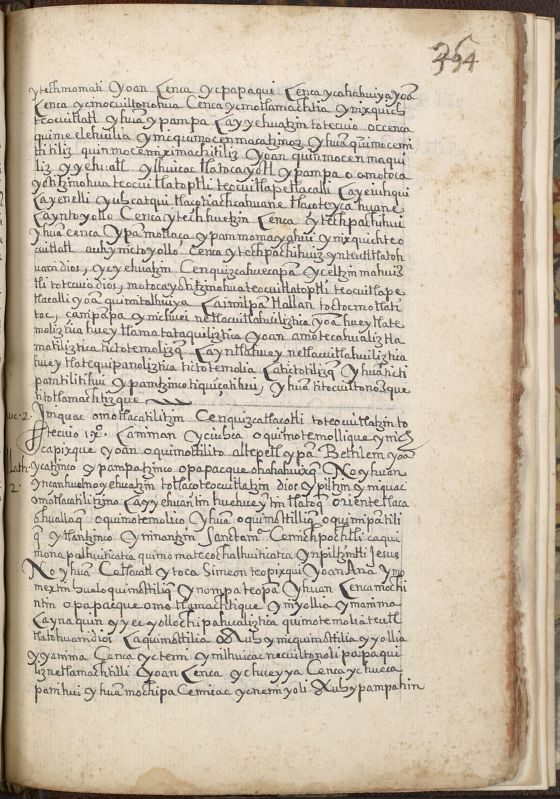 354
ytechmomati Yoan Cenca ycpapaqui Cenca ycahahuiya yoã
Cenca ycmocuiltonohua Cenca ycmotlamachtia yxquich
teocuitlatl yhuã ypampa Ca yyehuatzin totecuio occenca
quimelehuilia ymicquimocenmacatzinoz yhuã quimocem
titiliz quinmocemiximachitiliz yoan quinmocenmaqui
liz yyehuatl ylhuicac tlatocayotl ypampa o omoteca
ypotitzinohua teocuitlatoptli teocuitlapetlacalli Ca yeiuhqui
Ca yenelli yuhcatqui tlaçotiachcahuane tlaçoteycahuane
Ca ynto yollo Cenca ytechhuetzin Cenca ytechpachihui
yhuã cenca ypãmotlaça ypanmomayahui yn ixquich teo
cuitlatl auh yn icto yollo Cenca ytechpachihuiz yn teutl tlatoh
uani dios, yc yehuatzin Cenquizcahuecapã yceltzin mahuiz
tli totecuio dios, motocayotitzinohua teocuitlatoptli teocuitlape
tlacalli yoã quimitalhuiya Ca imilpã tlallan toctoc motlati
toc, campãpa ymihuei netlacuitlahuiliztica yoã huey tlate
moliztica huey tlamatataquiliztica yoan amotecahualiztla
matiliztica tictotemolizq̃ Ca yn tlahuey netlacuitlahuiliztica
huey tlatequipanoliztica tictotemolia Catictotilizq̃ yhuã ticti
pantilitihui ypantzinco tiquiçatihui, yhuã titocuiltonozque
titotlamachtizque
Luc. 2. Inquac omotlacatilitzin Cenquizcatlaçotli toteocuitlatzin to
tecuio ixº. Ca niman ycuhca oquimotemollique ymich
capixque yoan oquimottilito altepetl ypã Bethlem yoã
Math. 2. ycatzinco ypampatzinco opapacque ohahahuixq̃ No yhuan
yn canhuelno yehuatzin totlaçoteocuitlatzin dios ypiltzin ymiquac
omotlacatilitzino Ca yyehuantin huehueytin tlatoq̃ oriente tlaca
ohuallaq̃ oquimotemolico yhuã oquimottilliq̃ oquimpãtili
q̃ ytlantzinco ynnantzin Sanctam. Cemichpochtli caqui
monapalhuiticatca quimomatecochalhuiticatca yn piltzintli Jesus
No yhuã Catlacatl ytoca Simeon teopixqui yoan Ana ymo
mextin huelo quimottiliq̃ ynompa teopã yhuan Cenca mochi
ntin opapacque omotlamachtique yniyollia ymanima
Ca ynaquin yyec yollochipahualiztica quimotemolia teutl
tlatohuani dios Caquimottilia Auh ynicquimottilia yyollia
yyanima Cenca yctemi ynilhuicac necuiltonoli papaqui
liz netlamachtilli yoan Cenca ychueyya Cenca ychueca
panihui yhuã mochipa Cemicac ycnemi yoli Auh ypampatzin